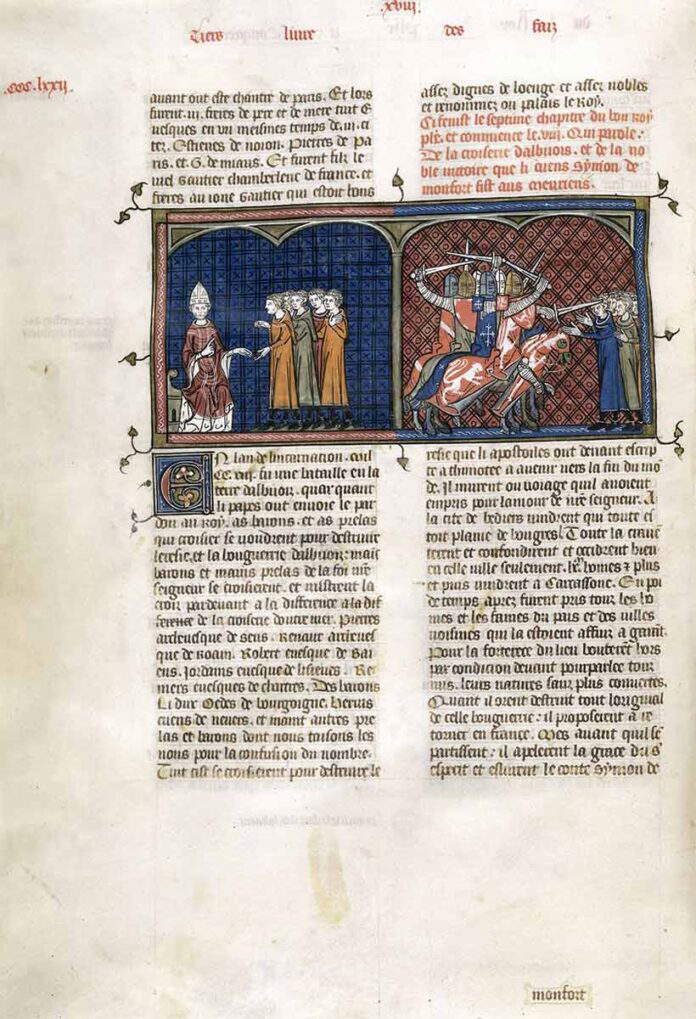 .xviii.
Tiers liure des faiz
.ccc.lxxii.
auant out este chantre de paris. Et lors
furent .iii. freres de pere et de mere tuit e
uesques en un meismes temps de .iii. ci
tez. Estienes de noion. Pierres de pa
ris. et .G. de miaus. Et furent filz le
uiel Gautier chamberlenc de france. et
freres au ione Gautier qui estoit bons
assez dignes de loenge et assez nobles
et renommez ou palais le Roy.
Ci fenist le septime chapitre du bon Roy
phe. et commence le .viii. Qui parole:
De la croiserie dalbiiois. et de la no
ble uictoire que li cuens Symon de
monfort fist aus
En lan de lincarnation. mil
CC. fu une bataille en la
terre dalbiiois. quar quant
li papes out enuoie le par
don au Roy. as barons. et as prelas
qui croisier se uoudrent pour destruire
leresie. et la bouguerie dalbiiois: mais
barons et mains prelas de la foi nre
seigneur se croisierent. et mistrent la
croiz pardeuant a la difference a la dif
ference de la croiserie doutremer. Pierres
arceuesque de Sens. Renaut arceues
que de Roain. Robert euesque de Bai
eus. Jordains euesque de lisieues. Re
niers euesques de chartres. Des barons
Li dux Oedes de bourgoigne. Heruis
cuens de neuers. et maint autres pre
las et barons dont nous taisons les
nons pour la confusion du nombre.
Tuit cist se croisierent pour destruire le
resie que li apostoiles out deuant escrip
te a thimotee a auenir uers la fin du mo
de. Il murent ou uoiage quil auoient
empris pour lamour de nre seigneur. A
la cite de bediers uindrent qui toute es
toit plaine de bougres. Toute la
et confondirent et occidrent bien
en celle uille seulement. hommes et plus
et puis uindrent a Carcassone. En poi
de temps apres furent pris touz les ho
mes et les fames du pais et des uilles
uoisines qui la estoient affui a garant.
Pour la forterece du lieu bouterent hors
par condicion deuant pourparlee touz
nus. leurs natures sanz plus couuertes.
Quant il orent destruit tout loriginal
de celle bouguerie: il proposerent a re
torner en france. Mes auant quil se
partissent: il apelerent la grace du s
esperit et eslirent le conte Symon de
monfort